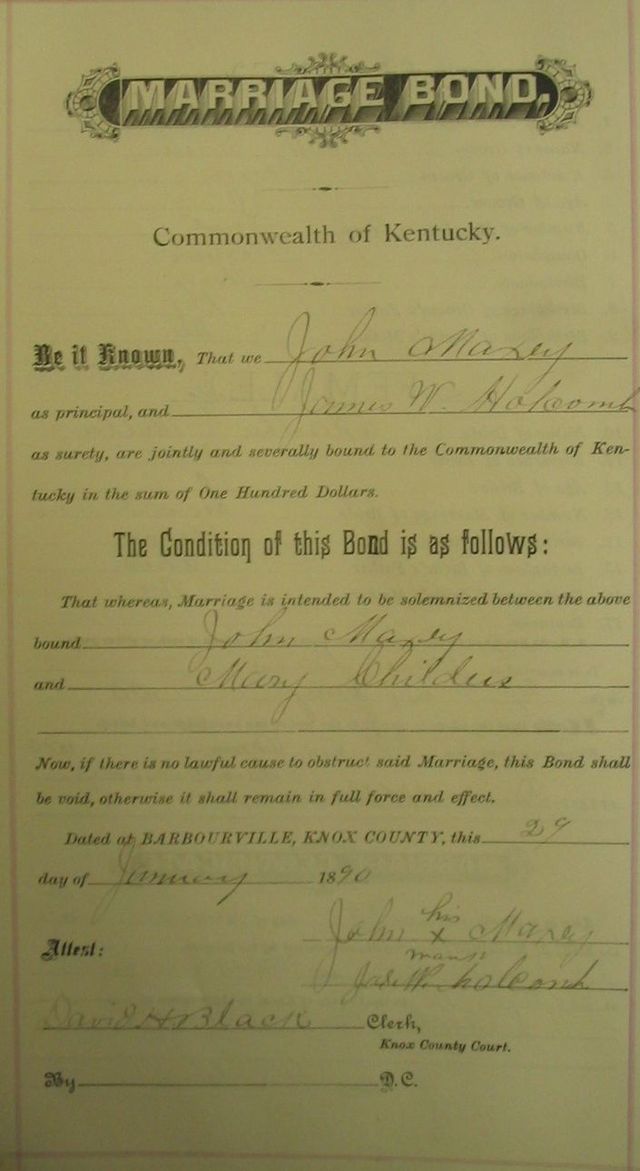 MARRIAGE BOND.
Commonwealth of Kentucky.
Be it Known, That we John Maxey
as principal, and James W. Holcomb
as surety, are jointly and severally bound to the Commonwealth of Ken-
tucky in the sum of One Hundred Dollars.
The Condition of this Bond is as follows:
That whereas, Marriage is intended to be solemnized between the above
bound John Maxey
and Mary Childers
Now, if there is no lawful cause to obstruct said Marriage, this Bond shall
be void, otherwise it shall remain in full force and effect.
Dated at BARBOURVILLE, KNOX COUNTY, this 29
day of January 1890
John his x Maxey
mark
Attest:
W. Holcomb
David H Black Clerk,
Knox County Court.
By D.C.